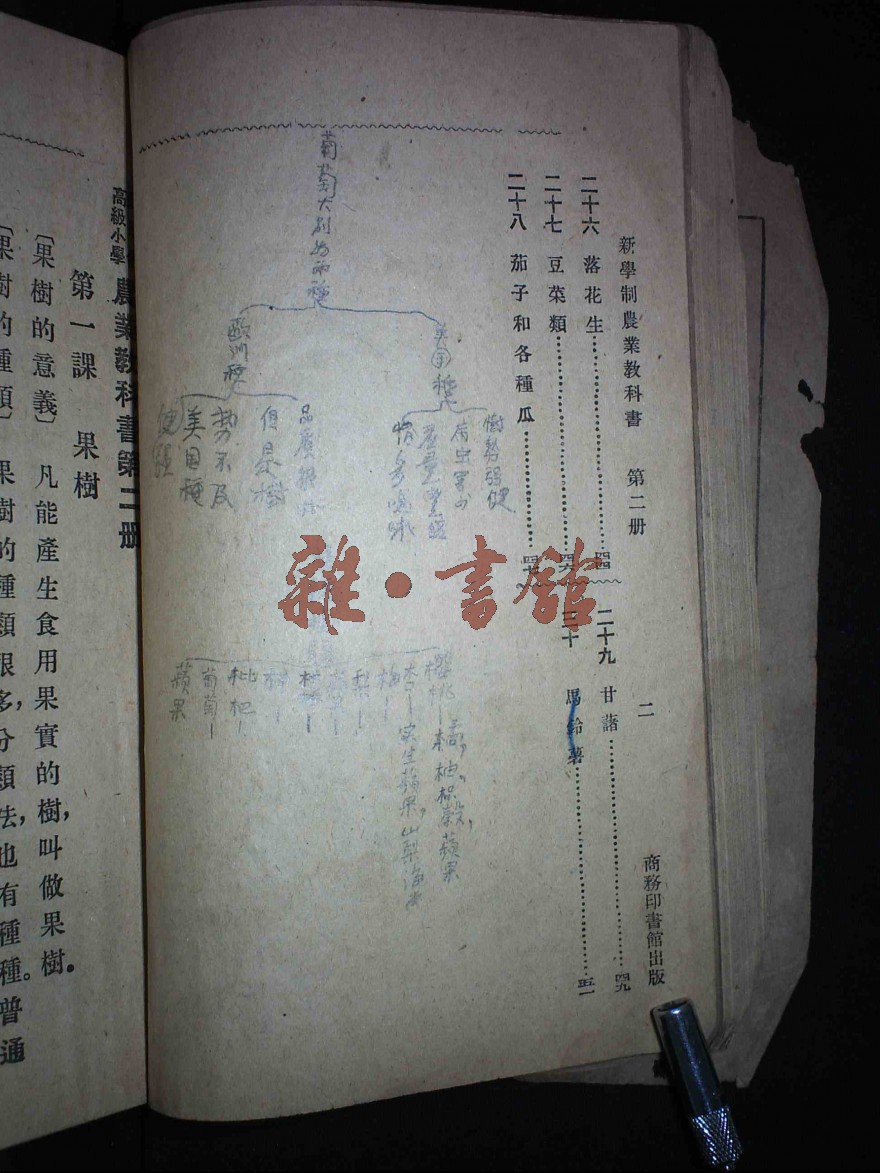 新學制農業教科書 第二册
二
商務印書館出版
二十六 落花生
二十七 豆菜類
二十八 茄子和各種瓜
二十九 甘藷
三十 馬鈴薯
葡萄大別為兩種
美國種
樹勢强健
病虫害少
產量豐盛
歐洲種
品質
但是樹
勢不及
美國種
櫻桃
杏
梅
梨
枇杷
葡萄
蘋果
橘,柚,枳穀,蘋果
實生蘋果,山梨海
雜·書館
高級小學 農業教科書第二册
第一課 果樹
〔果樹的意義〕凡能產生食用果實的樹,叫做果樹。
〔果樹的種類〕果樹的種類很多,分類法也有種種。普通